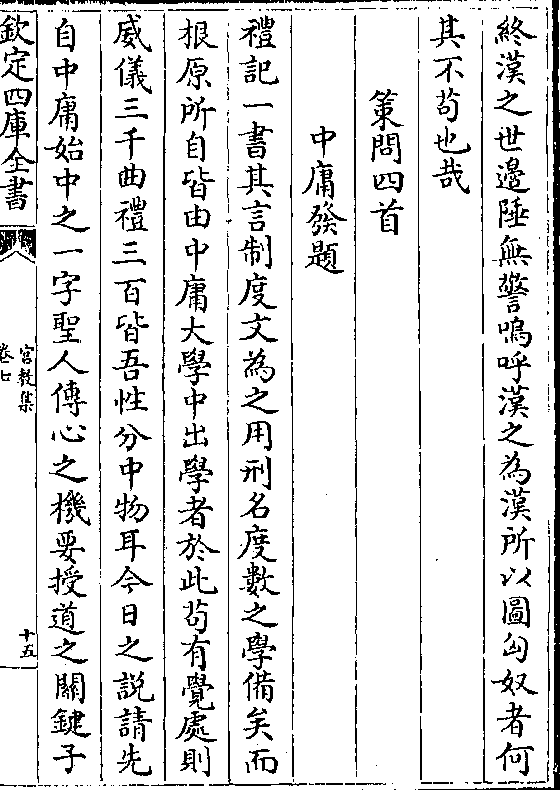 終漢之世邊陲無警嗚呼漢之為漢所以圖匈奴者何
其不苟也哉
策問四首
中庸發題
禮記一書其言制度文為之用刑名度數之學備矣而
根原所自皆由中庸大學中出學者於此苟有覺處則
威儀三千曲禮三百皆吾性分中物耳今日之說請先
自中庸始中之一字聖人傳心之機要授道之關鍵子
欽定四庫全書
宮教集
卷七
十五